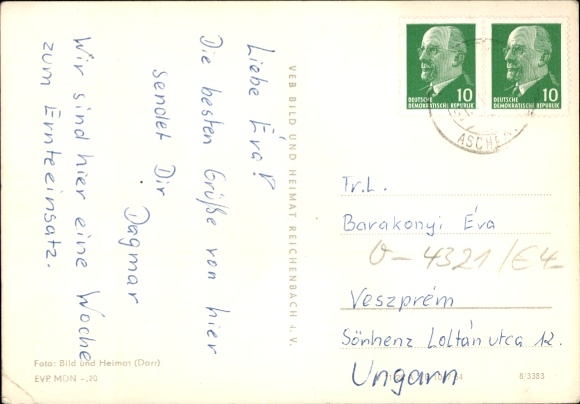 Liebe Éva!
Die besten Grüße von hier
sendet Dir
Dagmar
Wir sind hier eine Woche
zum Ernteeinsatz.
VEB BILD UND HEIMAT REICHENBACH i. V.
10 10
DEUTSCHE DEUTSCHE
DEMOKRATISCHE REPUBLIK DEMOKRATISCHE REPUBLIK
Tr.L.
Barakonyi Éva
0-4321/E4-
Veszprém
Sönhenz Loltán utca 12.
Ungarn
Foto: Bild und Heimat (Darr)
EVP MDN -,20
8/3383